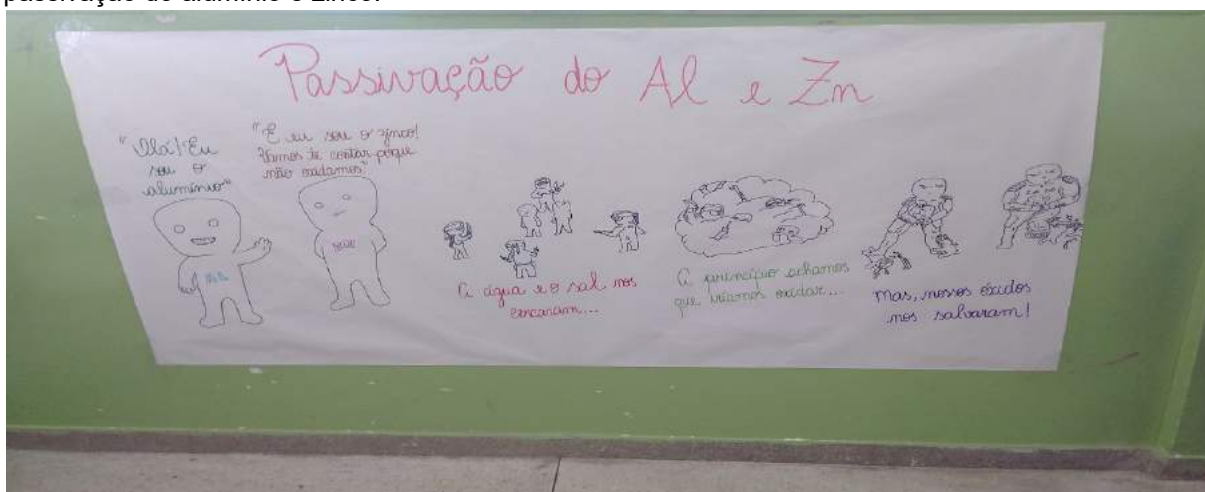 passivação do alumínio e zinco.
Passivação do Al e Zn
"Olá! Eu
sou o
alumínio"
"E eu sou o zinco!
Vamos te contar porque
não oxidamos!"
A água e o sal nos
cercaram...
A princípio achamos
que iríamos oxidar...
Mas, nossos óxidos
nos salvaram!